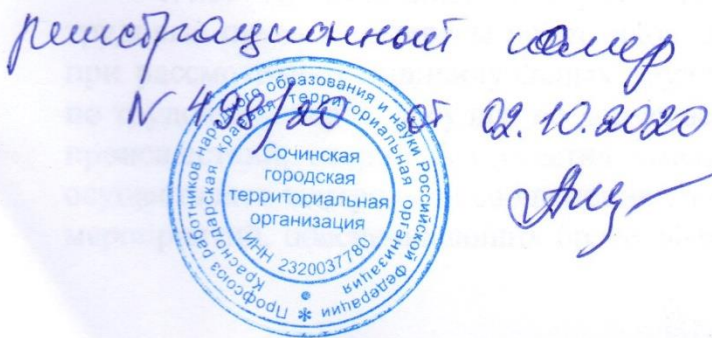 регистрационный номер
N 498/20 от 02.10.2020
Профсоюз работников народного образования и науки Российской Федерации
Краснодарская краевая территориальная организация
Сочинская
городская
территориальная
организация
ИНН 2320037780